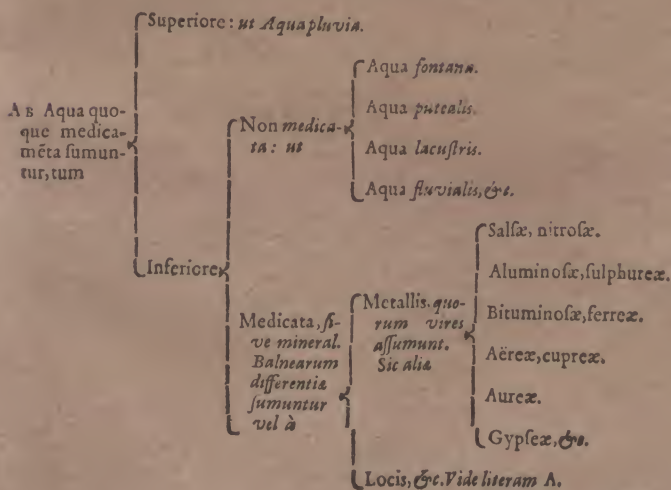 Superiore: ut Aqua pluvia.
AB Aqua quo-
que medica-
mēta ſumun-
tur, tum
Inferiore
Non medica-
ta: ut
Aqua fontana.
Aqua putealis.
Aqua lacuſtris.
Aqua fluvialis, &c.
Medicata, ſi-
ve mineral.
Balnearum
differentia
ſumuntur
vel à
Metallis. quo-
rum vires
aſſumunt.
Sic alia
Salſæ, nitroſæ.
Aluminoſæ, ſulphureæ.
Bituminoſæ, ferreæ.
Aëreæ, cupreæ.
Aureæ.
Gypſeæ, &c.
Locis, &c. Vide literam A.